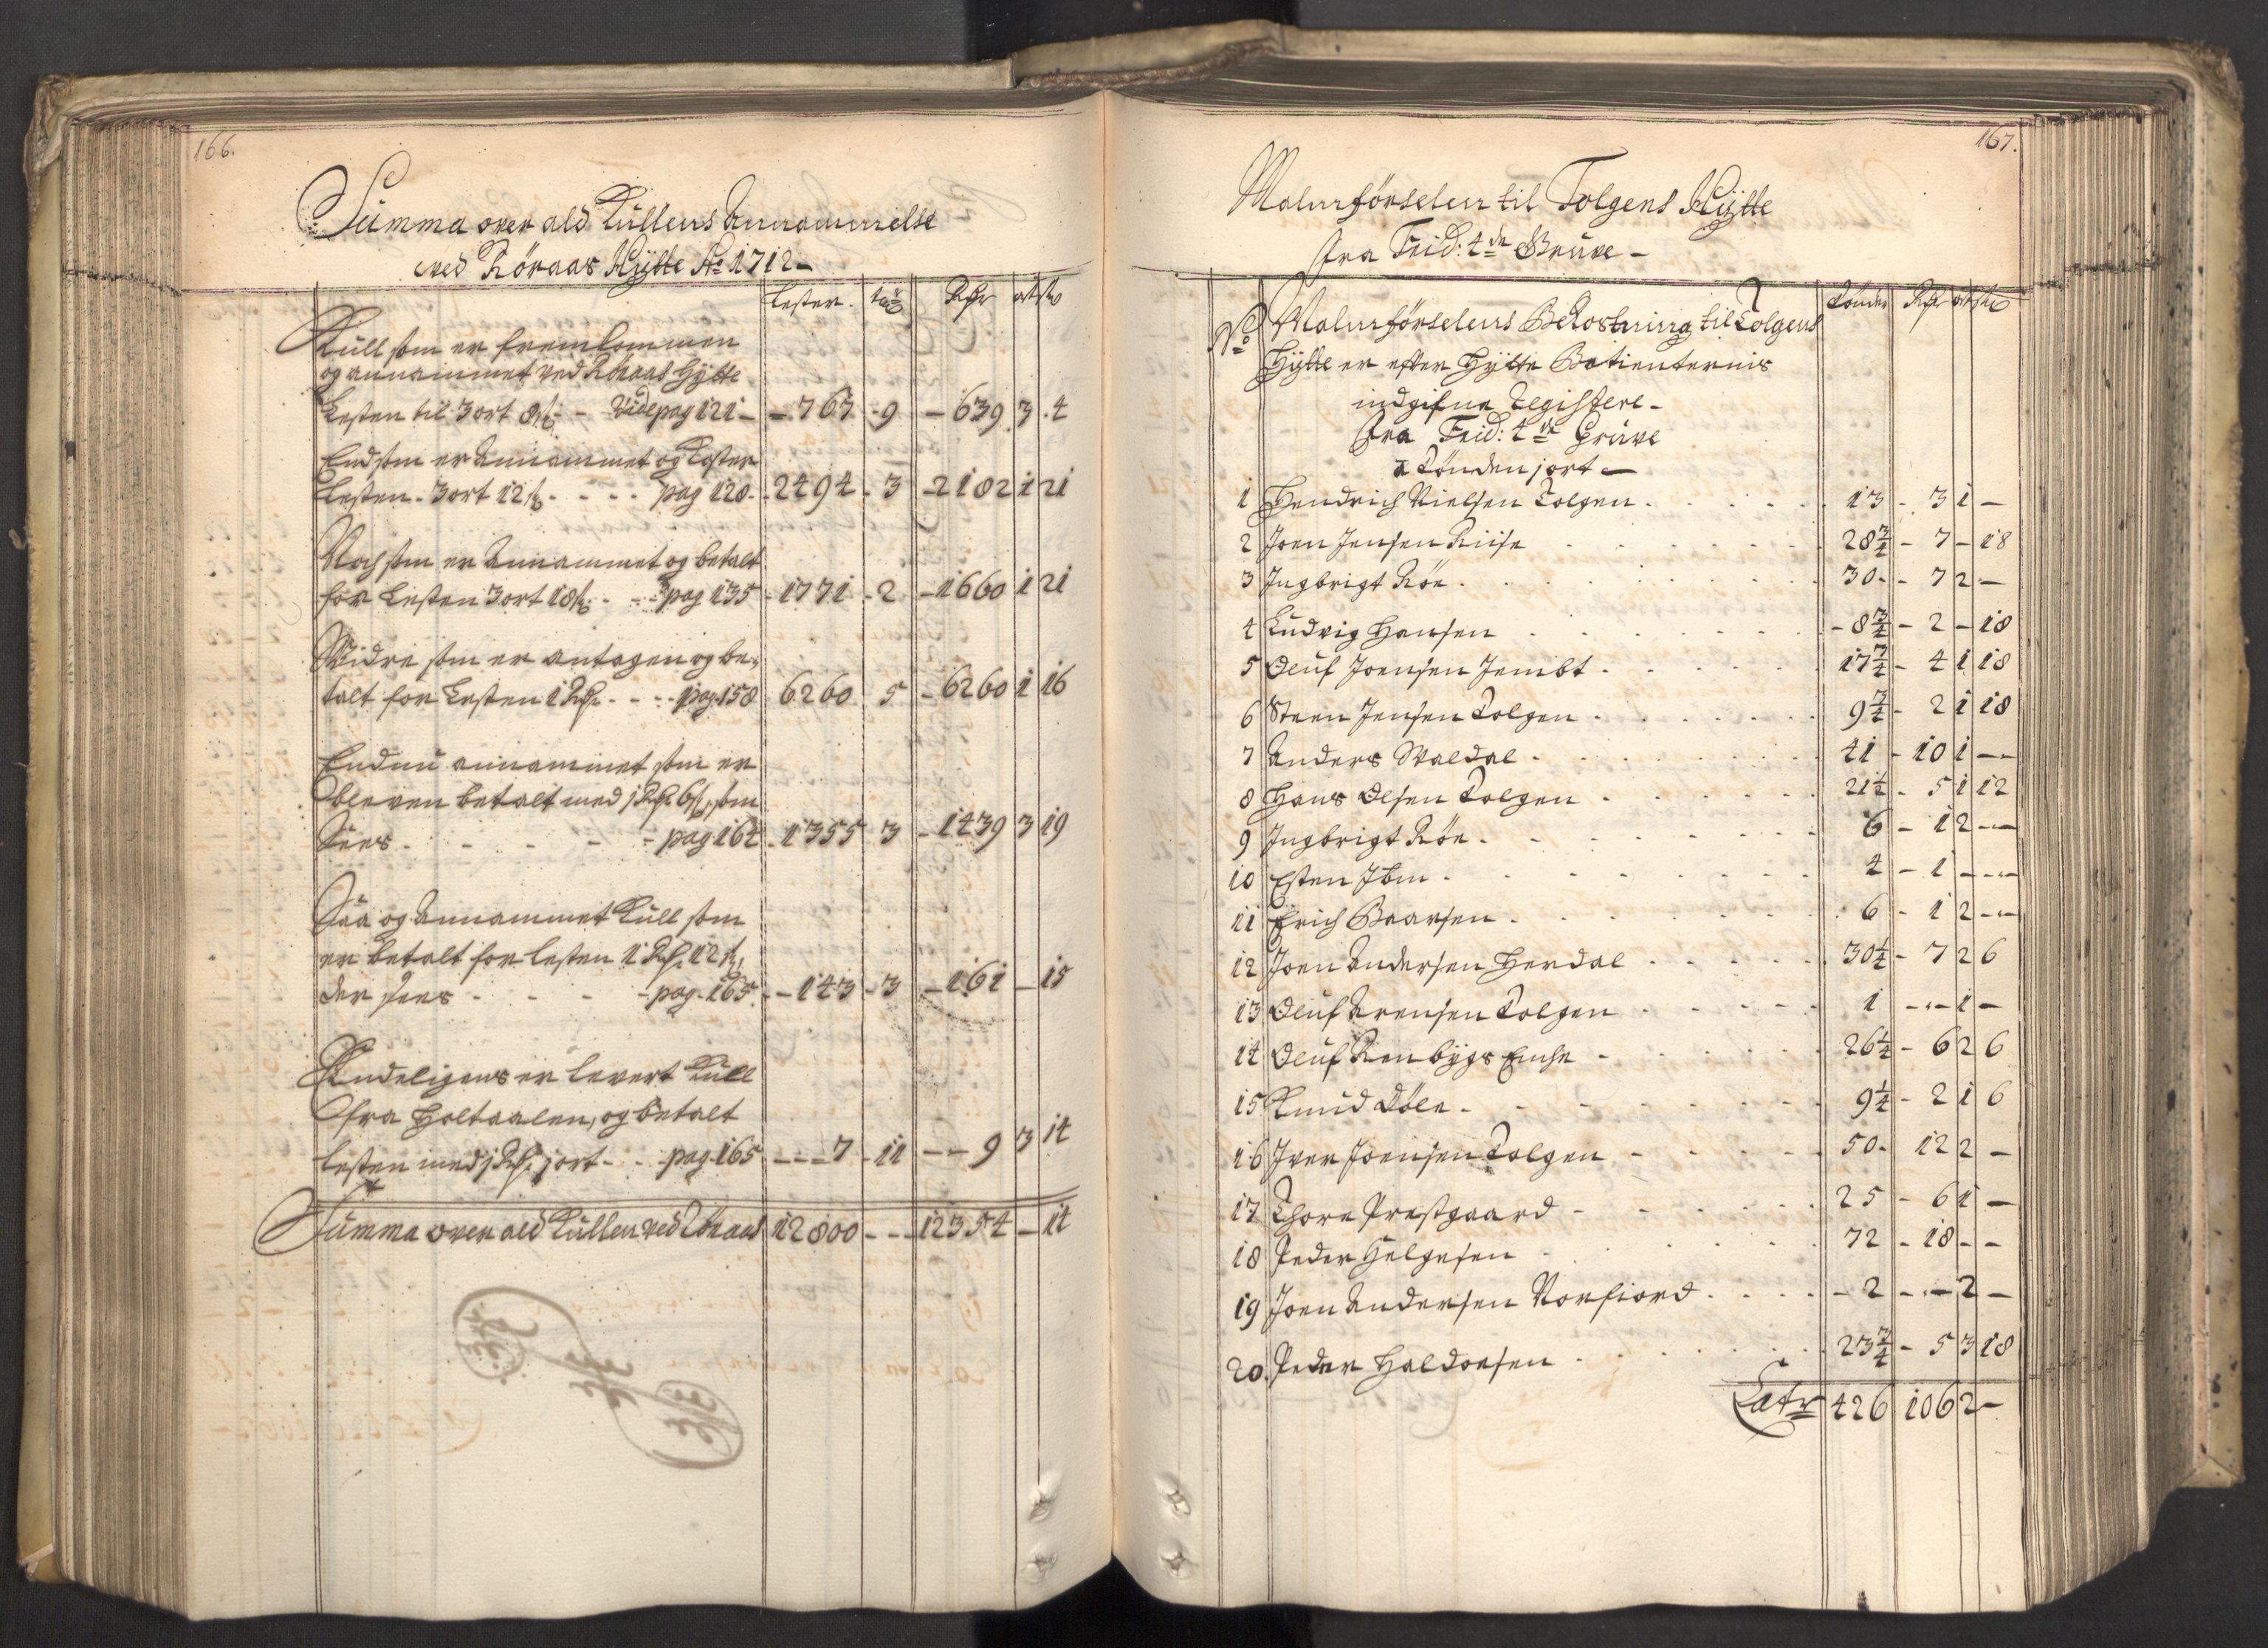 166.
Summa over ald Kullens Annammelse
ved Röraas Hÿtte Ao 1712
Lester. tnr Rdr ort s
Kull som er fremkommen
og annammet ved Röraas Hÿtte
Lesten til 3 ort 8 s - Vide pag 121 - 767 - 9 - 639 3 4
End som er Annammet og koster
Lesten - 3 ort 12 s - pag 128 - 2494 - 3 - 2182 1 21
Noch som er Annammet og betalt
for Lesten 3 ort 18 s - pag 135 - 1771 - 2 - 1660 1 21
Widre som er antagen og be-
talt for Lesten 1 Rdr - pag 158 6260 5 - 6260 1 16
Endnu annammet som er
bleven betalt med 1 Rdr 6 s, som
Sees - pag 164 - 1355 3 - 1439 3 19
Saa og Annammet Kull som
er betalt for lesten 1 Rdr 12 s,
der sees - pag 165 - 143 - 3 - 161 - 15
Endeligens er levert Kull
fra Holtaalen, og betalt
lesten med 1 Rdr 1 ort - pag 165 - 7 - 11 - 9 3 14
Summa over ald Kullen ved Röraas 12800 - - 12354 - 14
167.
Malmförselen til Tolgens Hÿtte
fra Frid: 4de Grüve -
No Malmförselens Bekostning til Tolgens Tönder Rdr ort s
Hÿtte er efter Hÿtte Betienternis
indgifne Registere -
fra Frid: 4de Grüve
a Tönden 1 ort -
1 Hendrich Nielsen Tolgen 13 - 3 1 -
2 Joen Jensen Riise 28 3/4 - 7 - 18
3 Ingbrigt Röe 30 - 7 2 -
4 Ludvig Hansen - 8 3/4 - 2 - 18
5 Oluf Joensen Jembt 17 3/4 - 4 1 18
6 Steen Jensen Tolgen 9 3/4 - 2 1 18
7 Anders Waldal 41 - 10 1 -
8 Hans Olsen Tolgen 21 1/2 - 5 1 12
9 Ingbrigt Röe 6 - 1 2 -
10 Esten Ibm 4 - 1 - -
11 Erich Baarsen 6 - 1 2 -
12 Joen Andersen Herdal 30 1/4 - 7 2 6
13 Oluf Arensen Tolgen 1 - - 1 -
14 Oluf Renbÿgs Enche 26 1/4 - 6 2 6
15 Knud Döle 9 1/4 - 2 1 6
16 Iver Joensen Tolgen 50 - 12 2 -
17 Thore Prestgaard 25 - 6 1 -
18 Peder Helgesen 72 - 18 - -
19 Joen Andersen Norfiord - 2 - - 2 -
20. Peder Haldorsen 23 3/4 - 5 3 18
Latr 426 106 2 -